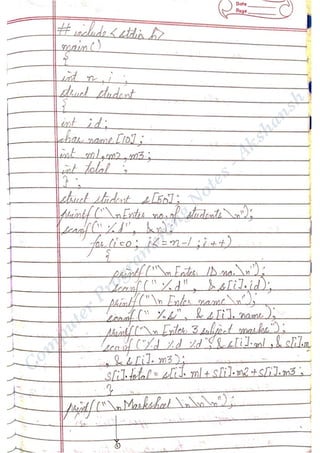 Date
Page
# include <stdio.h>
main()
{
int n, i ;
struct student
{
int id;
char name [10];
int m1, m2, m3;
int total ;
} ;
struct student s[50];
printf("\nEnter no. of students \n");
scanf("%d", &n);
for (i=0; i<=n-1; i++)
{
printf("\n Enter ID no. \n");
scanf("%d", &s[i].id);
printf("\n Enter name\n");
scanf("%s", &s[i].name);
printf("\n Enter 3 subject marks");
scanf("%d %d %d", &s[i].m1, &s[i].m
, &s[i].m3);
s[i].total = s[i].m1+s[i].m2+s[i].m3;
}
printf("\n Marksheet \n\n\n");
Computer Programming Notes - Akshansh